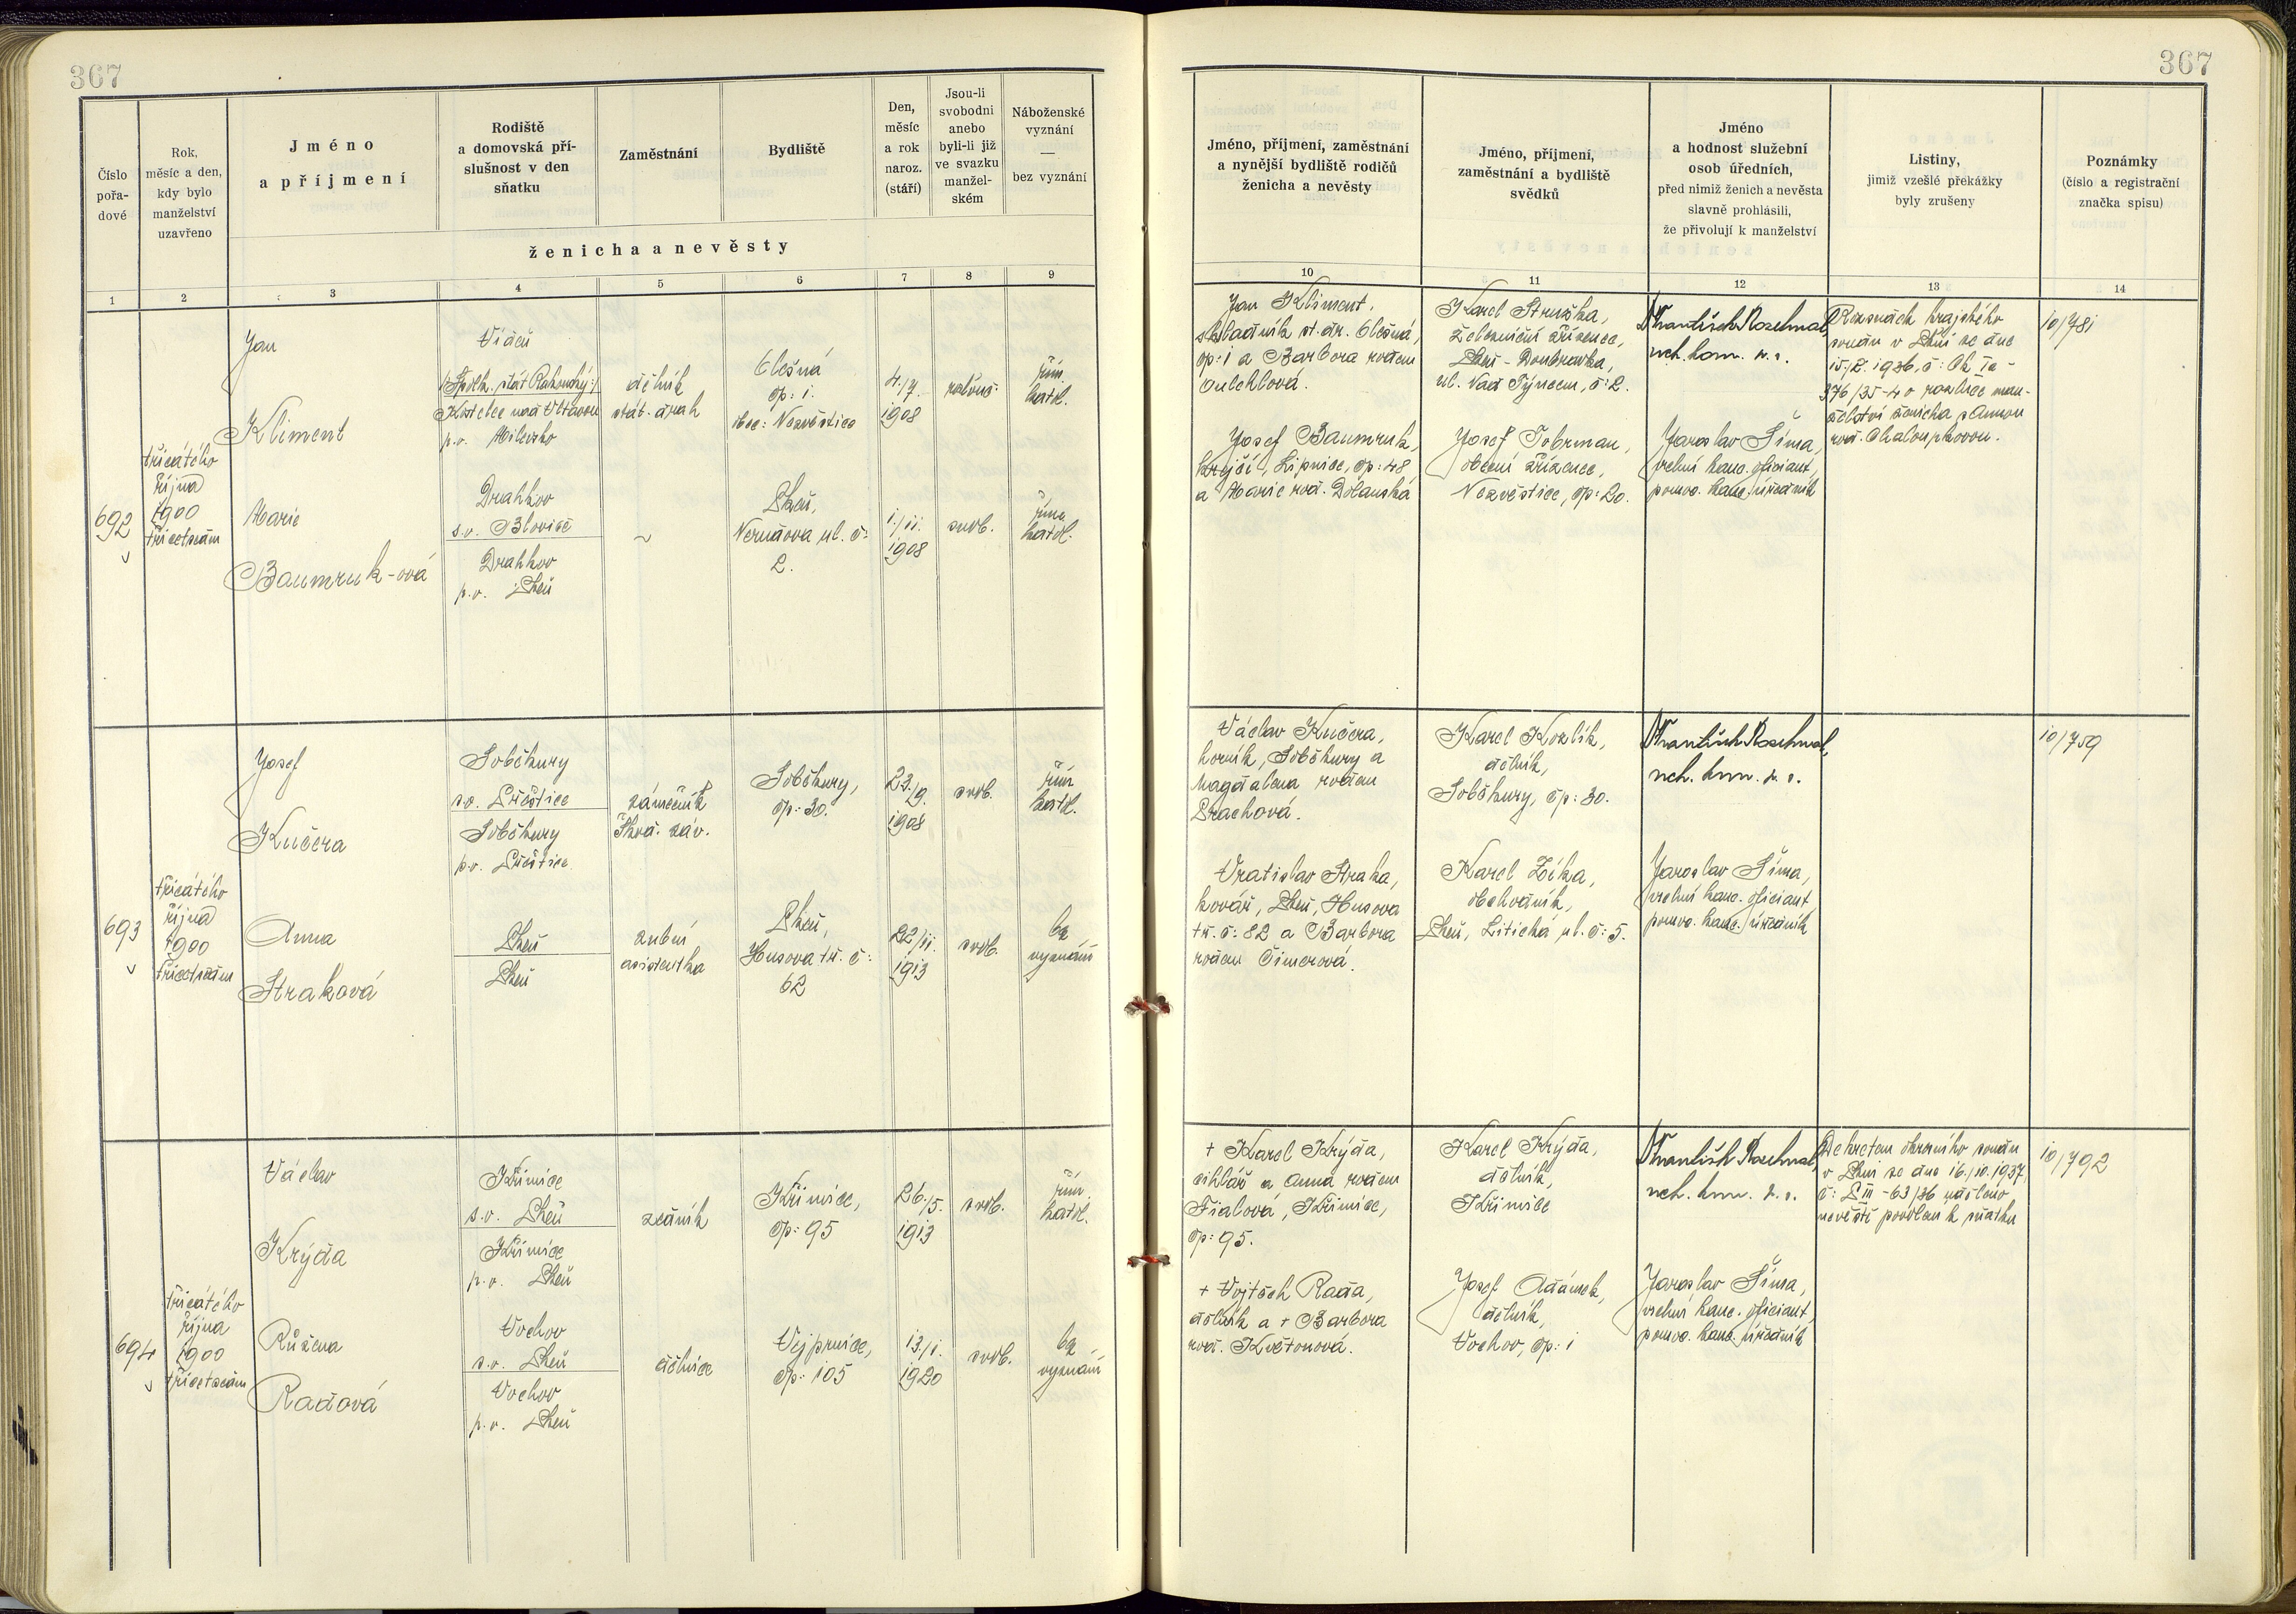 367
367
Číslo
pořa-
dové
Rok,
měsíc a den,
kdy bylo
manželství
uzavřeno
Jméno
a příjmení
Rodiště
a domovská pří-
slušnost v den
sňatku
Zaměstnání
Bydliště
Den,
měsíc
a rok
naroz.
(stáří)
Jsou-li
svobodni
anebo
byli-li již
ve svazku
manžel-
ském
Náboženské
vyznání
—
bez vyznání
ženicha a nevěsty
1 2 3 4 5 6 7 8 9
Jméno, příjmení, zaměstnání
a nynější bydliště rodičů
ženicha a nevěsty
Jméno, příjmení,
zaměstnání a bydliště
svědků
Jméno
a hodnost služební
osob úředních,
před nimiž ženich a nevěsta
slavně prohlásili,
že přivolují k manželství
Listiny,
jimiž vzešlé překážky
byly zrušeny
Poznámky
(číslo a registrační
značka spisu)
10 11 12 13 14
692
třicátého
října
1900
třicetsedm
Jan
Kliment
Marie
Baumruk-ová
Vídeň
/:Spolk. stát Rakouský:/
Kostelec nad Vltavou
p.o. Milevsko
Drahkov
s.o. Blovice
Drahkov
p.o. Plzeň
dělník
stát. drah
~
Olešná
čp: 1.
obec: Nezvěstice
Plzeň,
Nerudova ul. č:
2.
4./7.
1908
1./11.
1908
rozluč.
svob.
řím.
katol.
řím.
katol.
Jan Kliment,
skladník st. dr. Olešná,
čp: 1 a Barbora rozem
Josef Baumruk,
krejčí, Lipnice, čp: 48
a Marie roz. Dolanská
Karel Struška,
železniční zřízenec,
Plzeň - Doubravka,
ul. Nad Týncem, č: 2.
Josef Tobrman,
obecní zřízenec,
Nezvěstice, čp: 20.
František
Jaroslav Šíma,
vrchní kanc. oficiant,
pomoc. kanc. úředník
Rozsudek krajského
soudu v Plzni ze dne
15./2. 1936, č: Ck Ia -
376/35-40 rozluce man-
želství ženicha s Annou
roz. Chaloupkovou.
10/781
693
třicátého
října
1900
třicetsedm
Josef
Kučera
Anna
Straková
Soběkury
s.o. Přeštice
Soběkury
p.o. Přeštice
Plzeň
Plzeň
zámečník
Škod. záv.
zubní
asistentka
Soběkury,
čp: 30.
Plzeň,
Husova tř. č:
62
23./9.
1908
22/11.
1913
svob.
svob.
řím.
katol.
bez
vyznání
Václav Kučera,
horník, Soběkury a
Magdalena rozem
Prachová.
Vratislav Straka,
kovář, Plzeň, Husova
tř. č: 82 a Barbora
rozem Čimerová.
Karel Kozlík,
dělník,
Soběkury, čp: 30.
Karel Zíka,
obchodník,
Plzeň, Litická ul. č: 5.
František
Jaroslav Šíma,
vrchní kanc. oficiant
pomoc. kanc. úředník
10/759
694
třicátého
října
1900
třicetsedm
Václav
Krýda
Růžena
Radová
Křimice
s.o. Plzeň
Křimice
p.o. Plzeň
Vochov
s.o. Plzeň
Vochov
p.o. Plzeň
zedník
dělnice
Křimice,
čp: 95
Vejprnice,
čp: 105
26./5.
1913
13./1.
1920
svob.
svob.
řím.
katol.
bez
vyznání
+ Karel Krýda,
cihlář a Anna rozem
Fialová, Křimice,
čp: 95.
+ Vojtěch Rada,
dělník a + Barbora
roz. Květonová.
Karel Krýda,
dělník,
Křimice
Josef Adámek,
dělník,
Vochov, čp: 1
František
Jaroslav Šíma,
vrchní kanc. oficiant,
pomoc. kanc. úředník
Dekretem okresního soudu
v Plzni ze dne 16./10. 1937,
č: P III - 63/36 uděleno
nevěstě povolení k sňatku
10/792